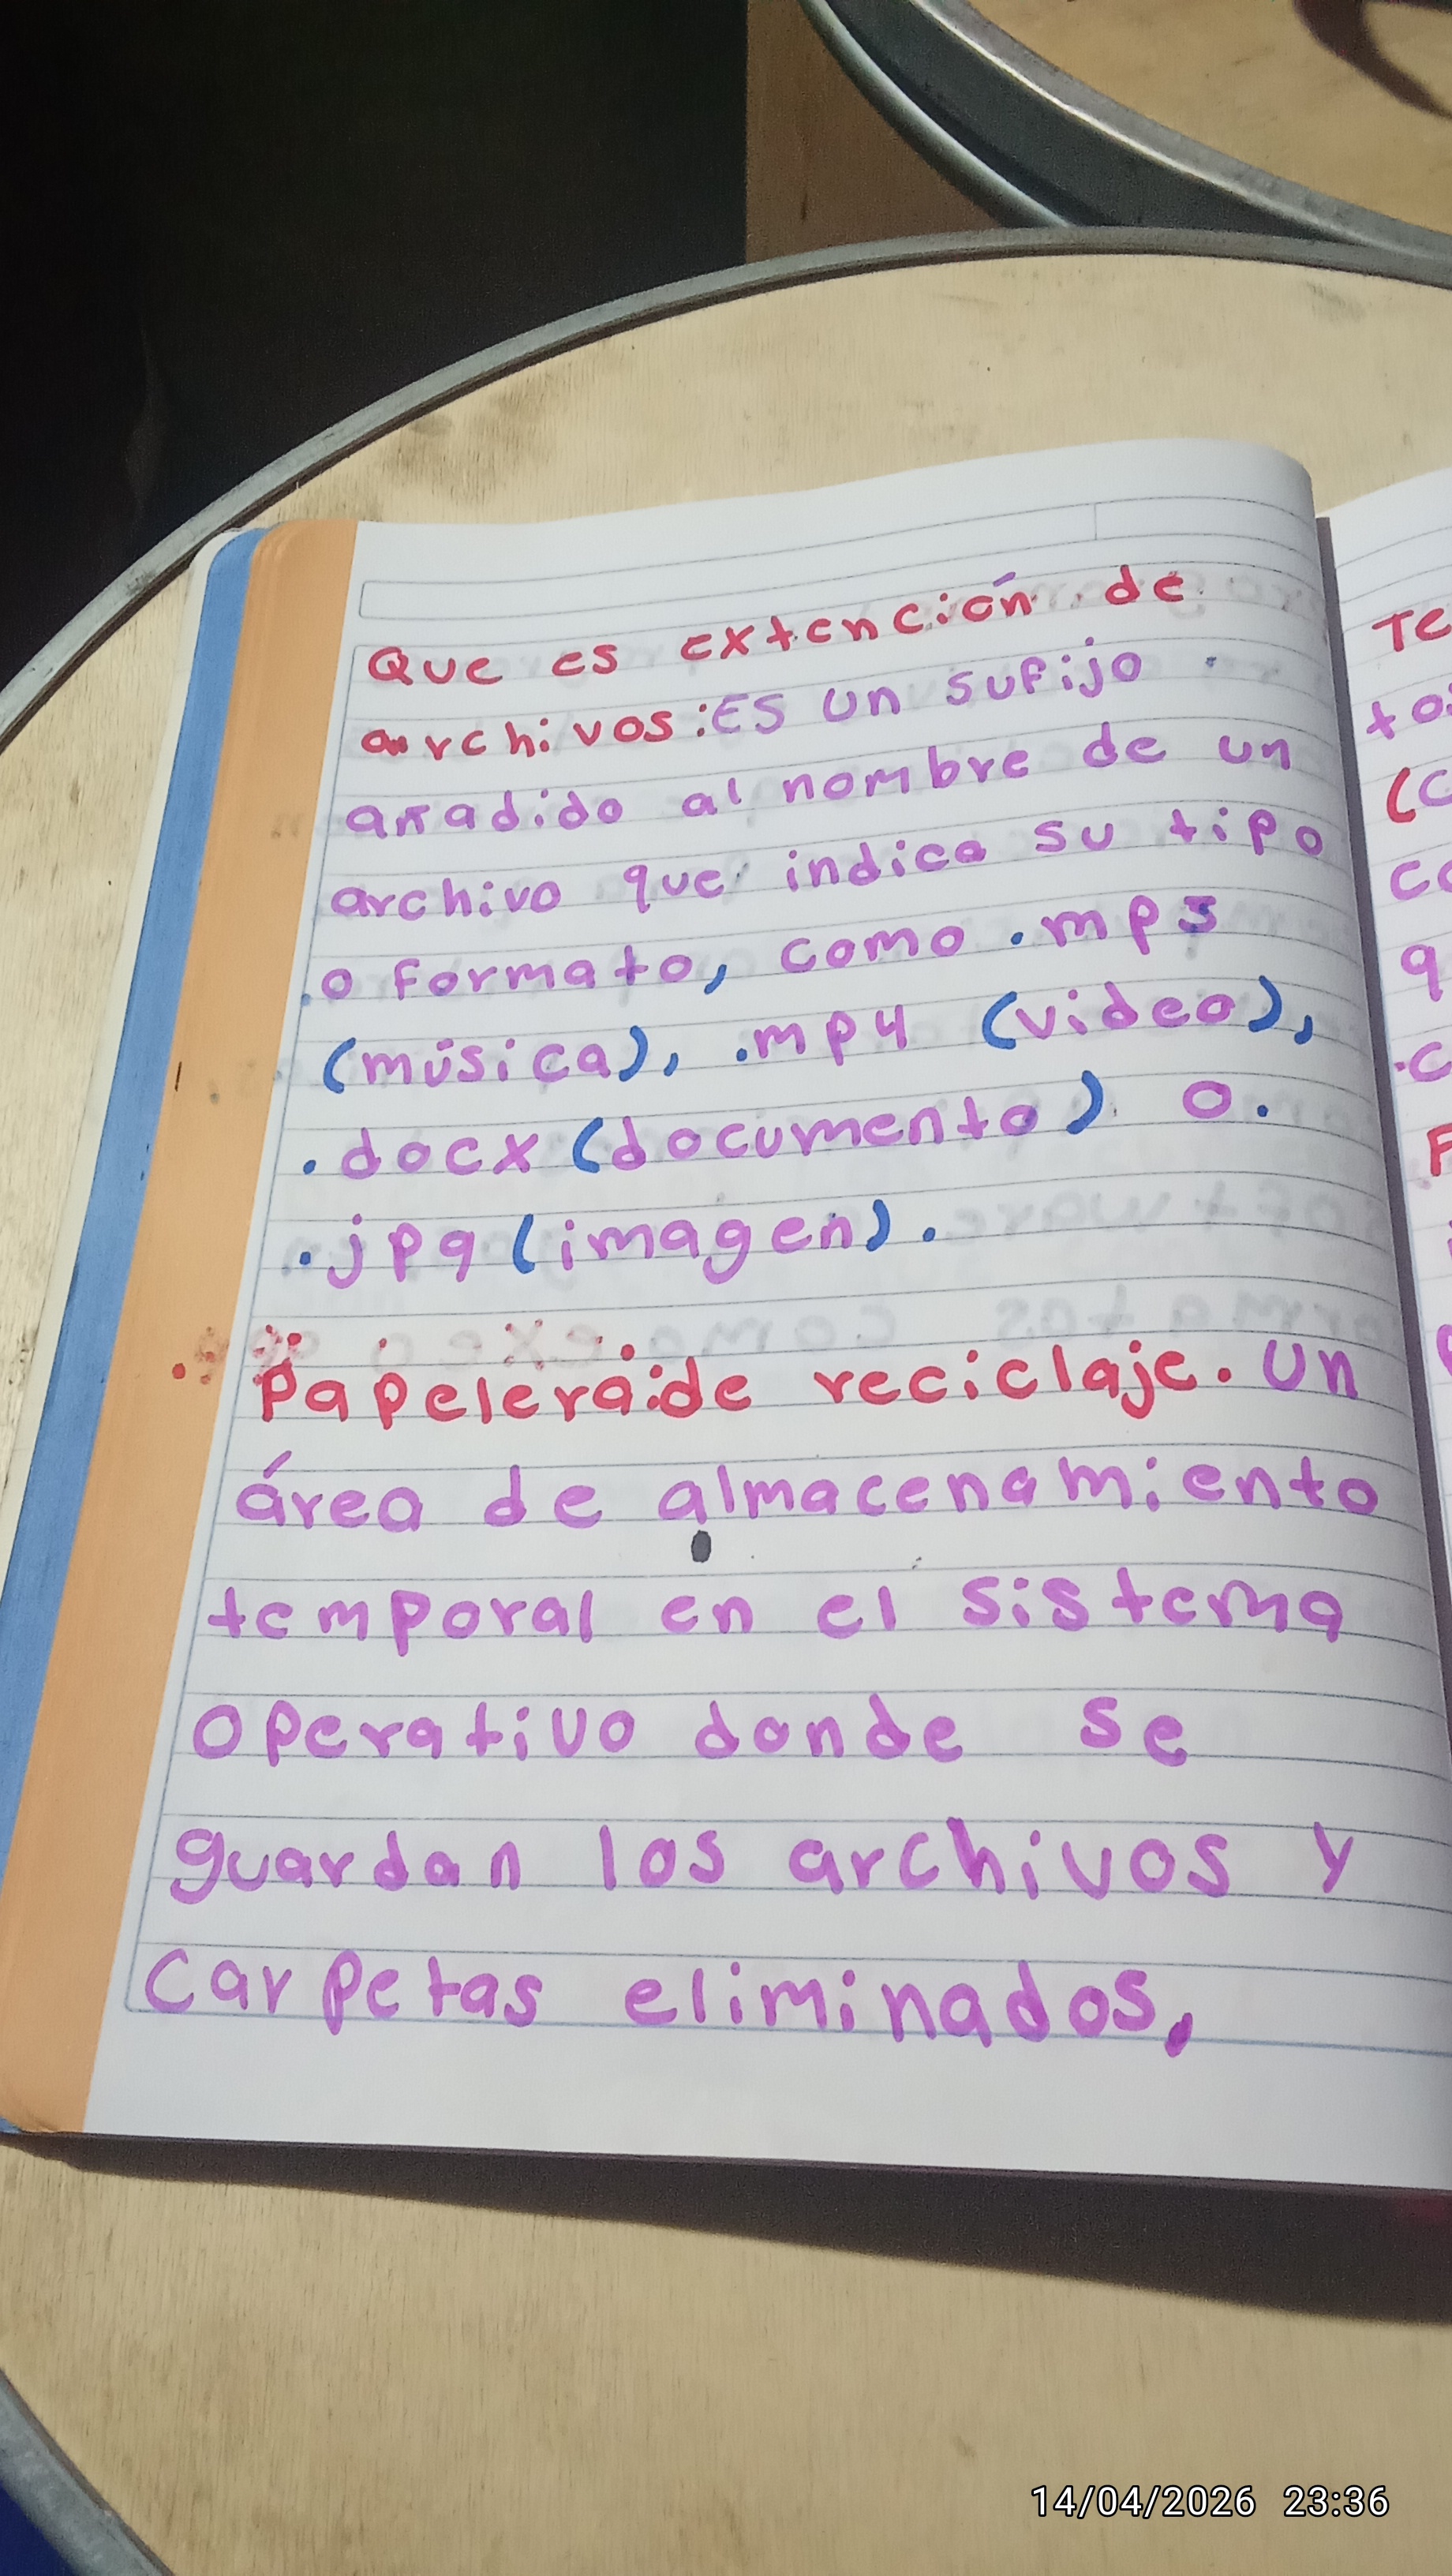 Que es extención de
archivos: ES un sufijo
añadido al nombre de un
archivo que indica su tipo
o formato, como .mp3
(música), .mp4 (video),
.docx (documento) o.
.jpg (imagen).
Papelera de reciclaje. Un
área de almacenamiento
temporal en el sistema
operativo donde se
guardan los archivos y
carpetas eliminados.
14/04/2026 23:36